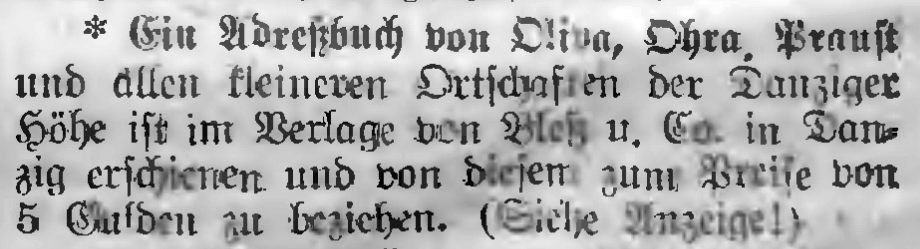 * Ein Adreßbuch von Oliva, Ohra, Praust
und allen kleineren Ortschaften der Danziger
Höhe ist im Verlage von u. Co. in Dan-
zig erschienen und von diesem zum Preise von
5 Gulden zu beziehen. (Siehe Anzeige!)